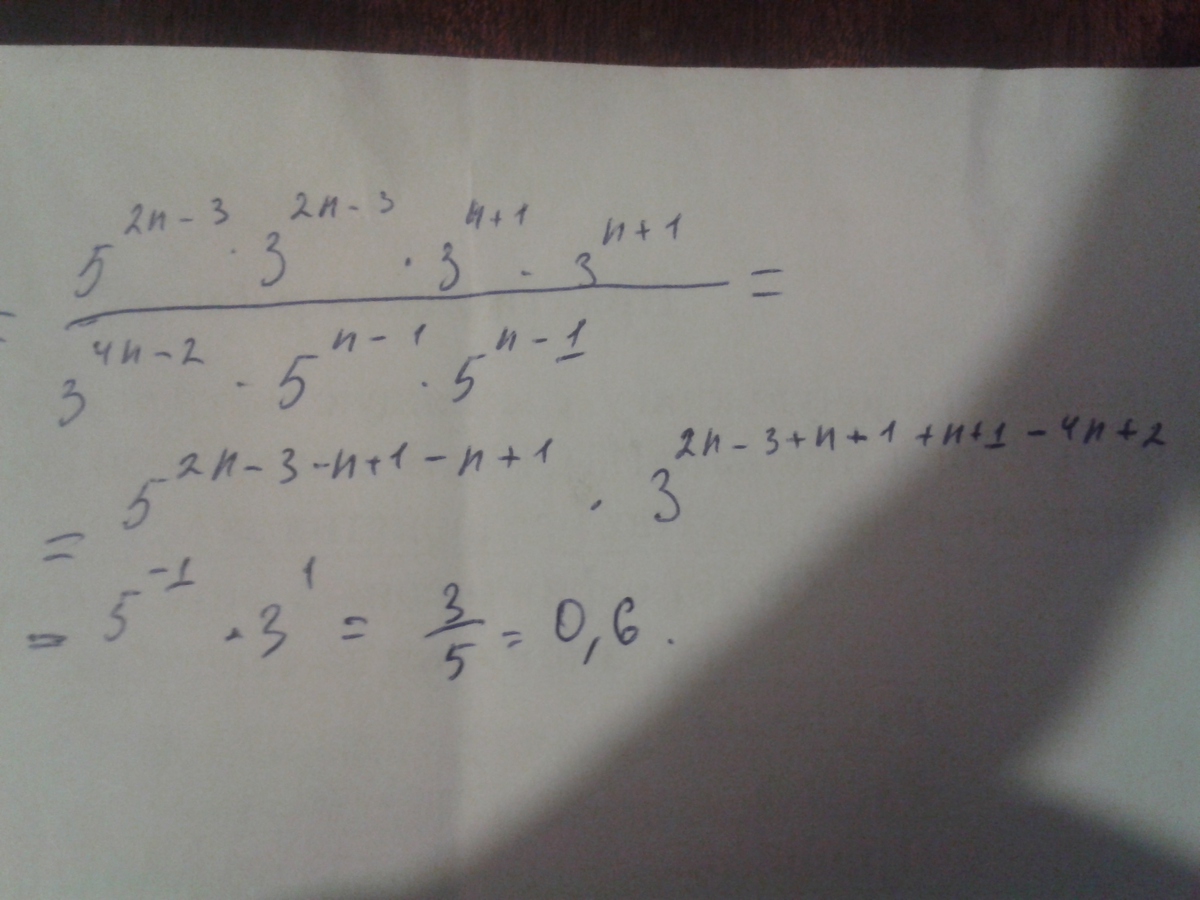 = 5^{2n-3} · 3^{2n-3} · 3^{n+1} · 3^{n+1} =
3^{4n-2} · 5^{n-1} · 5^{n-1}
= 5^{2n-3-n+1-n+1} · 3^{2n-3+n+1+n+1-4n+2}
= 5^{-1} · 3^{1} = 3/5 = 0,6.